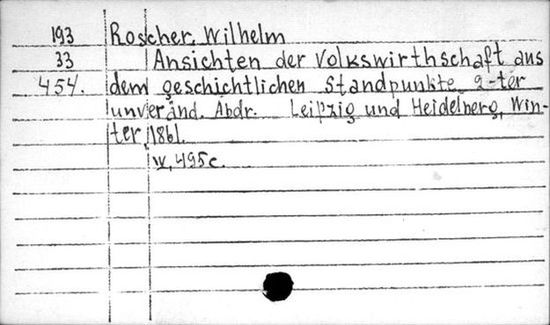 193 Roscher, Wilhelm
33 Ansichten der Volkswirthschaft aus
454. dem geschichtlichen Standpunkte 2-ter
unveränd. Abdr. Leipzig und Heidelberg, Win-
ter, 1861.
IV, 495 c.